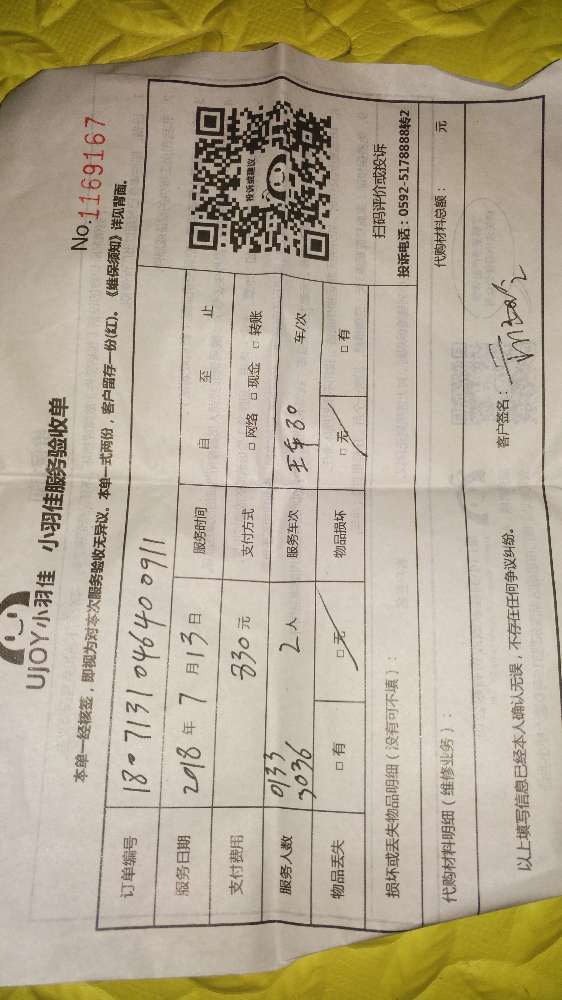 UJOY小羽佳 小羽佳服务验收单
No.1169167
本单一经核签，即视为对本次服务验收无异议。本单一式两份，客户留存一份(红)。《维保须知》详见背面。
订单编号 1807131046400911
服务日期 2018 年 7 月 13 日 服务时间 自 至 止
支付费用 330 元 支付方式 □ 网络 □ 现金 □ 转账
服务人数 0133 3036 2 人 服务车次 车/次
物品丢失 □ 有 □ 无 物品损坏 □ 无 □ 有
投诉或建议
扫码评价或投诉
投诉电话：0592-5178888转2
损坏或丢失物品明细（没有可不填）：
代购材料明细（维修业务）： 代购材料总额： 元
以上填写信息已经本人确认无误，不存在任何争议纠纷。 客户签名：